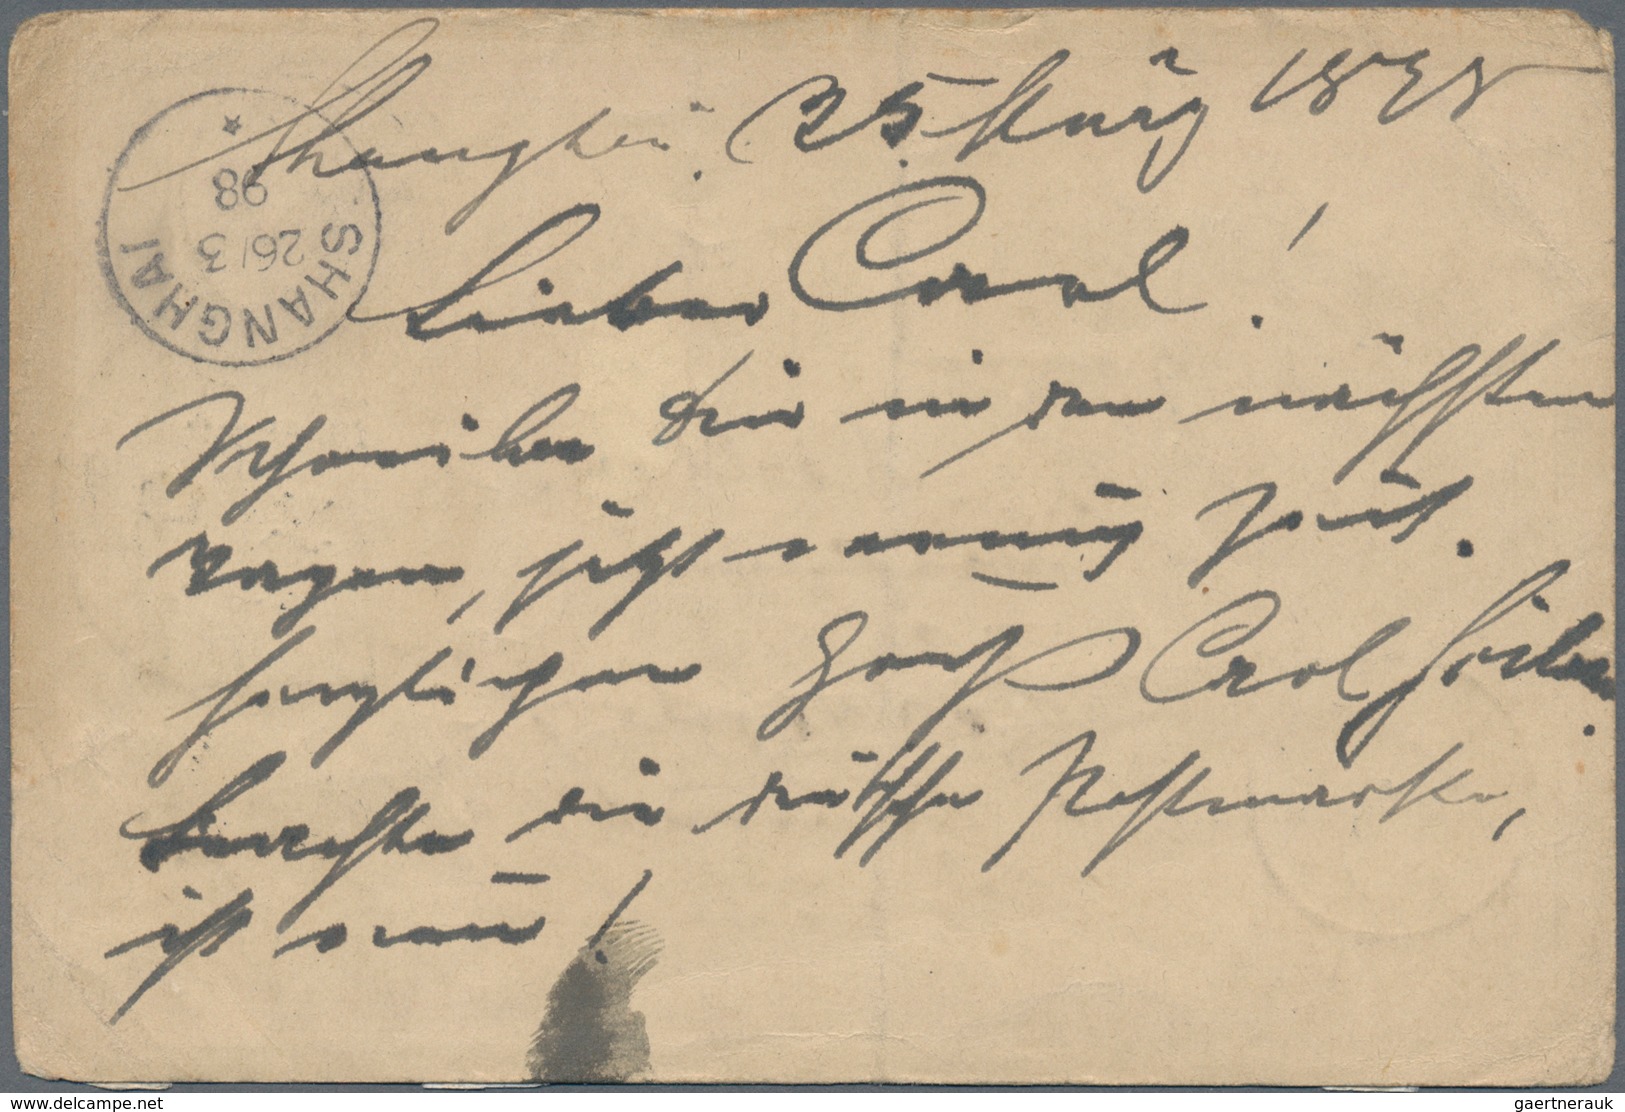 Shanghai. 25. März 1898
SHANGHAI
26/3
98
Lieber Carl!
Schreibe Dir in den nächsten
Tagen, jetzt wenig Zeit.
Herzlichen Gruß Carl
Beachte die deutsche Postmarke,
ist neu!
www.delcampe.net
gaertnerauk